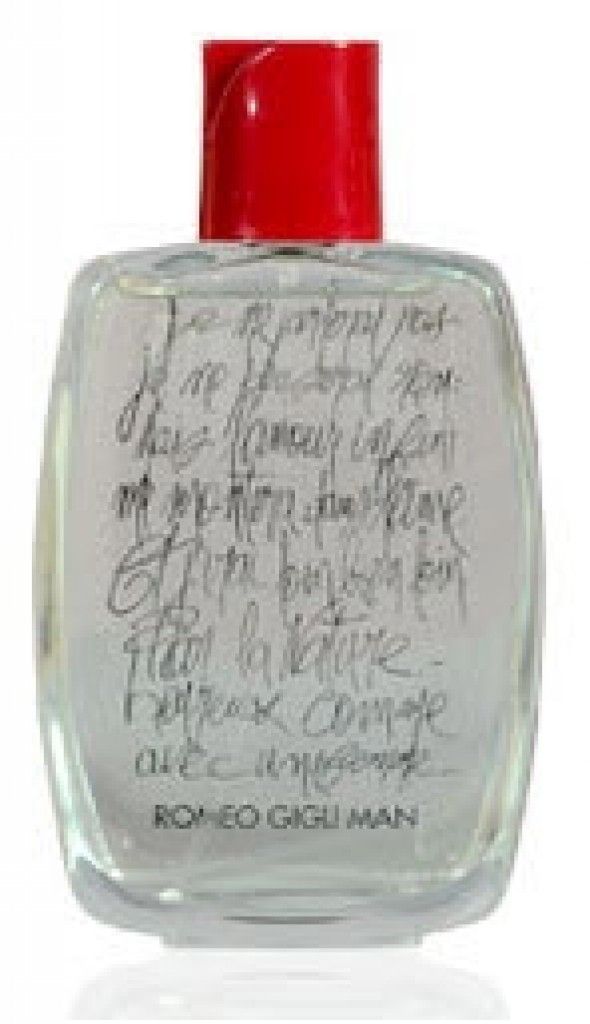 Je ne parlerai pas
je ne penserai rien
Mais l'amour infini
me montera dans l'âme
Et j'irai loin, bien loin
Par la Nature -
heureux comme
avec une femme -
ROMEO GIGLI MAN